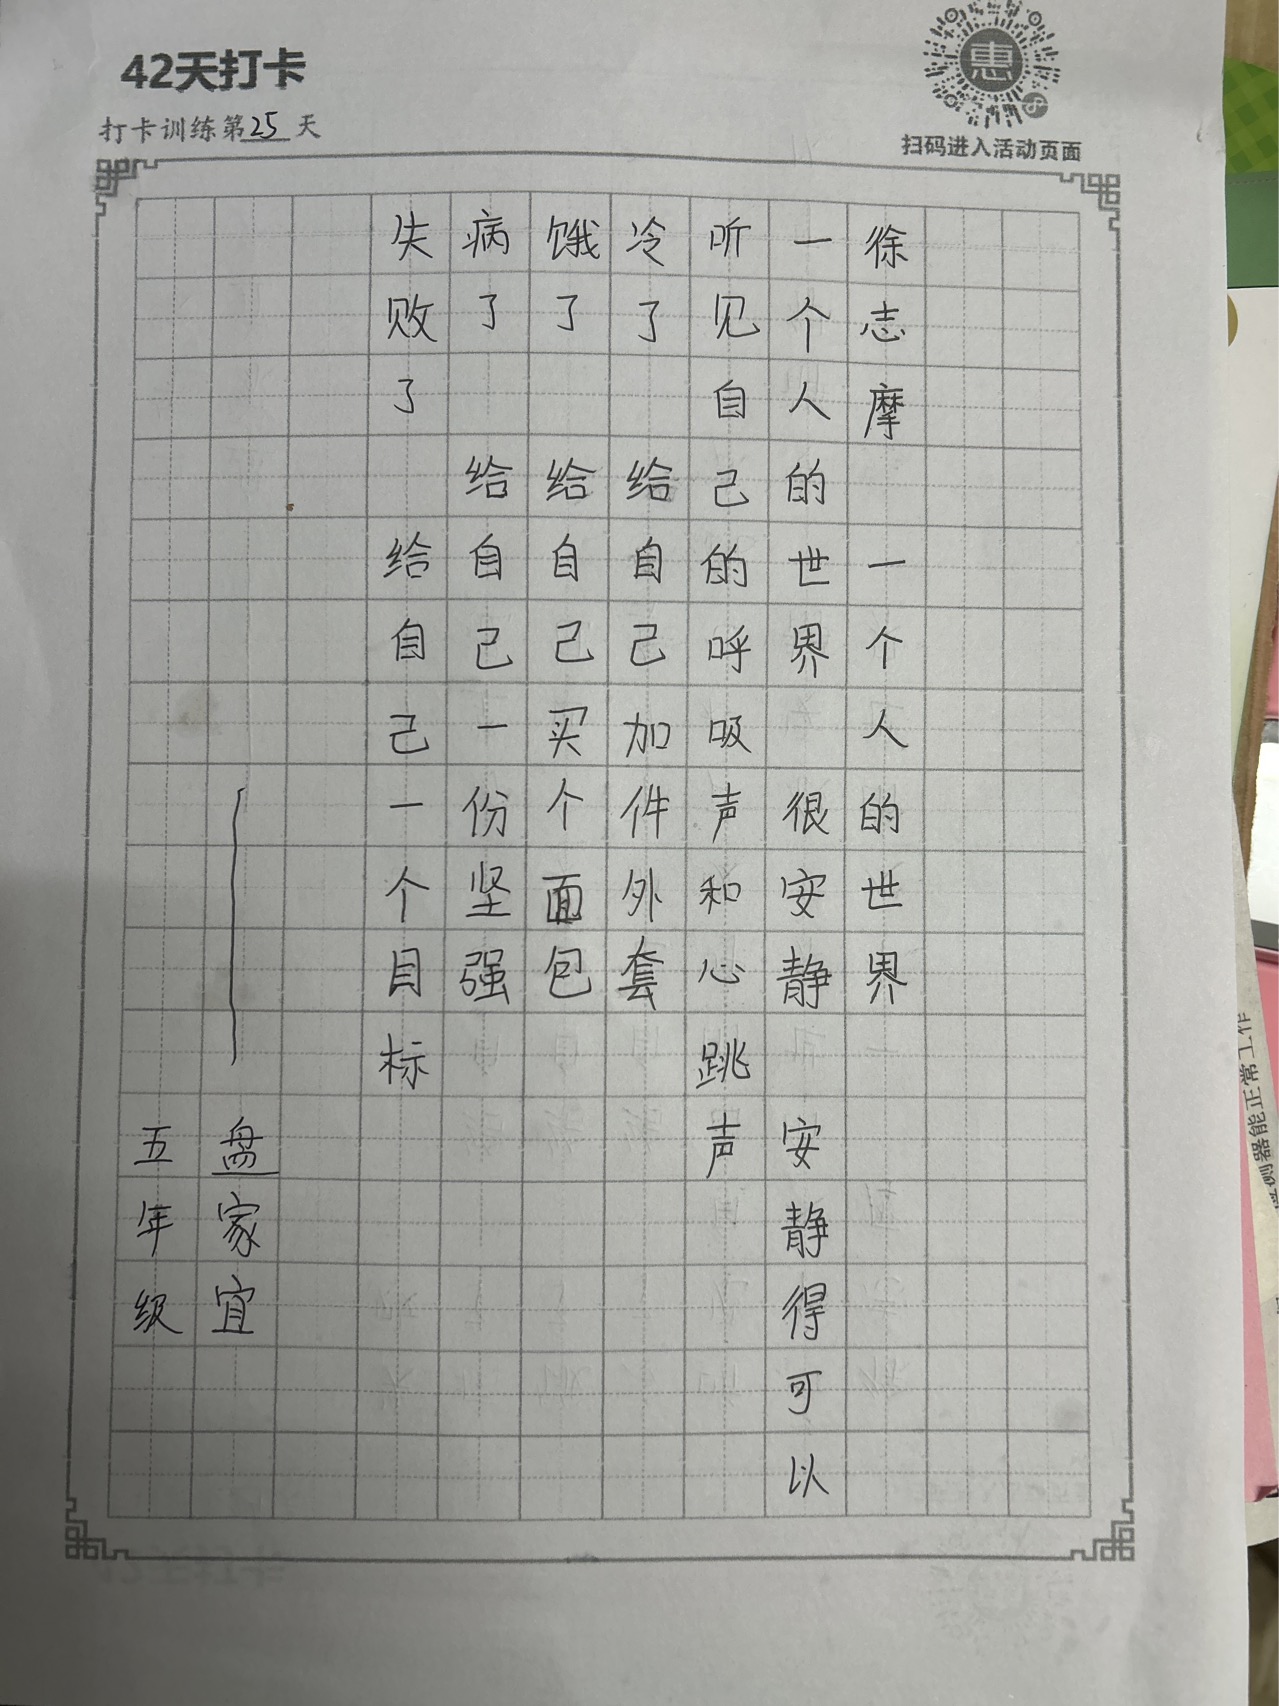 42天打卡
打卡训练第25天
惠
扫码进入活动页面
徐志摩 一个人的世界
一个人的世界 很安静 安静得可以
听见自己的呼吸声和心跳声
冷了 给自己加件外套
饿了 给自己买个面包
病了 给自己一份坚强
失败了 给自己一个目标
家宜
五年级
刷器能正常工作